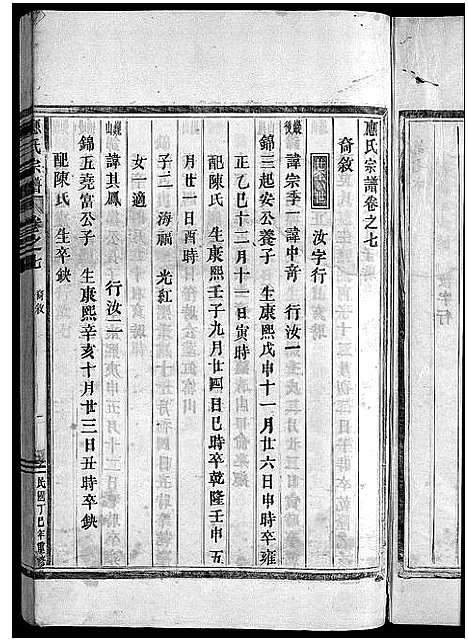 應氏宗譜卷之七
裔敘
汝字行
巖後
諱宗季一諱中奇 行汝一
錦三起安公養子 生康熙戊申十一月廿六日申時卒雍
正乙巳十二月十一日寅時
配陳氏 生康熙壬子九月廿四日巳時卒乾隆壬申五
月廿一日酉時
子二 海福 光紅
女一適
山
諱其鳳 行汝二
錦五堯富公子 生康熙辛亥十月廿三日丑時卒缺
配陳氏 生卒缺
應氏宗譜
卷之七 裔敘 一 民國丁巳年重修